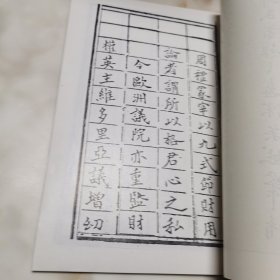 周礼冢宰以九式節財用
論者謂所以格君心之私
今歐洲議院亦重監財
權英主維多里亞議增幼